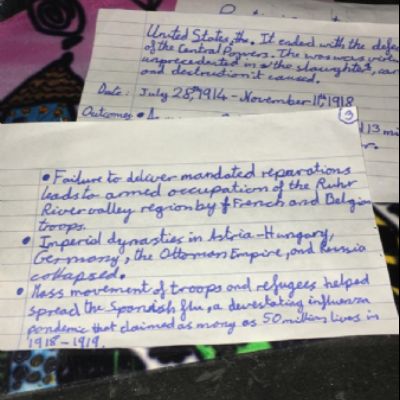 United States, the. It ended with the defe
of the Central Powers. The war was virtu
unprecedented in the slaughter, car
and destruction it caused.
Date: July 28th, 1914 - November 11th, 1918
Outcomes
13 m
3
• Failure to deliver mandated reparations
leads to armed occupation of the Ruhr
River valley region by French and Belgian
troops.
• Imperial dynasties in Astria-Hungary,
Germany, the Ottoman Empire, and Russia
collapsed.
• Mass movement of troops and refugees helped
spread the Spanish flu, a devestating influenza
pandemic that claimed as many as 50 million lives in
1918-1919.